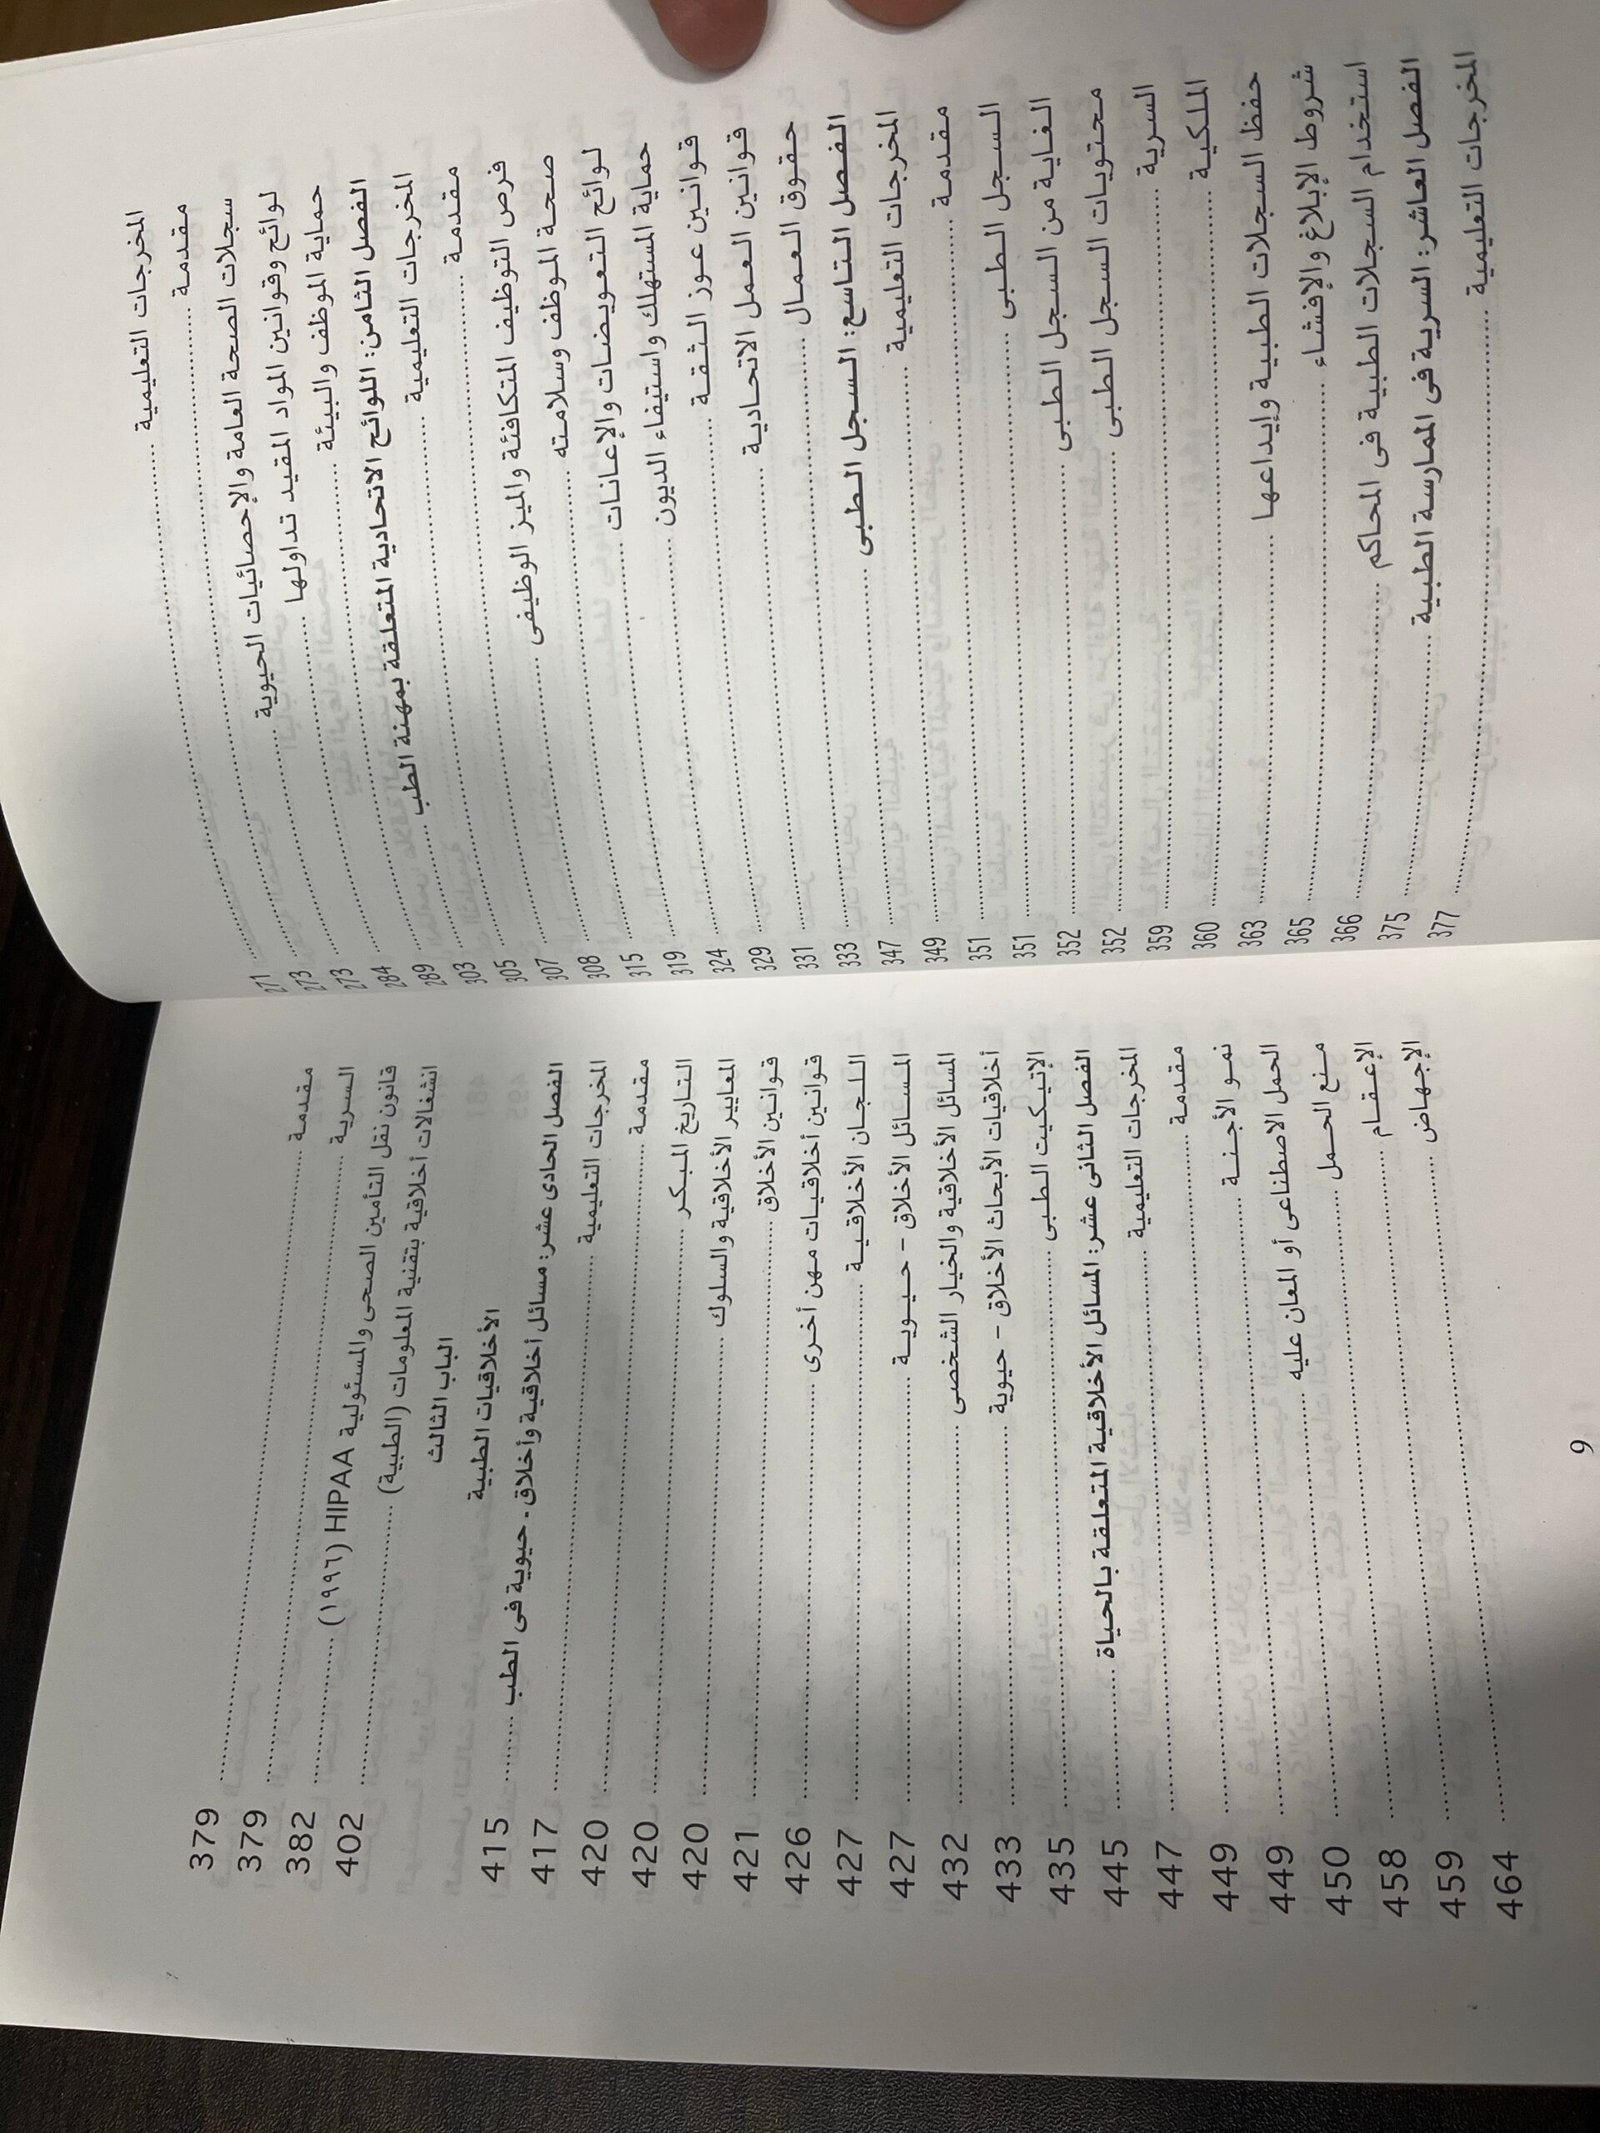 المخرجات التعليمية ........ 271
مقدمة ........ 273
سجلات الصحة العامة والإحصائيات الحيوية ........ 273
لوائح وقوانين المواد المقيد تداولها ........ 284
حماية الموظف والبيئة ........ 289
الفصل الثامن: اللوائح الاتحادية المتعلقة بمهنة الطب ........ 303
المخرجات التعليمية ........ 305
مقدمة ........ 307
فرص التوظيف المتكافئة والميز الوظيفى ........ 308
صحة الموظف وسلامته ........ 315
لوائح التعويضات والإعانات ........ 319
حماية المستهلك واستيفاء الديون ........ 324
قوانين عوز الشقة ........ 329
قوانين العمل الاتحادية ........ 331
حقوق العمال ........ 333
الفصل التاسع: السجل الطبى ........ 347
المخرجات التعليمية ........ 349
مقدمة ........ 351
السجل الطبى ........ 351
الغاية من السجل الطبى ........ 352
محتويات السجل الطبى ........ 352
السرية ........ 359
الملكية ........ 360
حفظ السجلات الطبية وإيداعها ........ 363
شروط الإبلاغ والإفشاء ........ 365
استخدام السجلات الطبية فى المحاكم ........ 366
الفصل العاشر: السرية فى الممارسة الطبية ........ 375
المخرجات التعليمية ........ 377
مقدمة ........ 379
السرية ........ 379
قانون نقل التأمين الصحى والمسئولية HIPAA (١٩٩٦) ........ 382
انشغالات أخلاقية بتقنية المعلومات (الطبية) ........ 402
الباب الثالث
الأخلاقيات الطبية
الفصل الحادى عشر: مسائل أخلاقية وأخلاق - حيوية فى الطب ........ 415
المخرجات التعليمية ........ 417
مقدمة ........ 420
التاريخ المبكر ........ 420
المعايير الأخلاقية والسلوك ........ 420
قوانين الأخلاق ........ 421
قوانين أخلاقيات مهن أخرى ........ 426
اللجان الأخلاقية ........ 427
المسائل الأخلاق - حيوية ........ 427
المسائل الأخلاقية والخيار الشخصى ........ 432
أخلاقيات الأبحاث الأخلاق - حيوية ........ 433
الإتيكيت الطبى ........ 435
الفصل الثانى عشر: المسائل الأخلاقية المتعلقة بالحياة ........ 445
المخرجات التعليمية ........ 447
مقدمة ........ 449
نمو الأجنة ........ 449
الحمل الاصطناعى أو المعان عليه ........ 450
منع الحمل ........ 458
الإعقام ........ 459
الإجهاض ........ 464
9